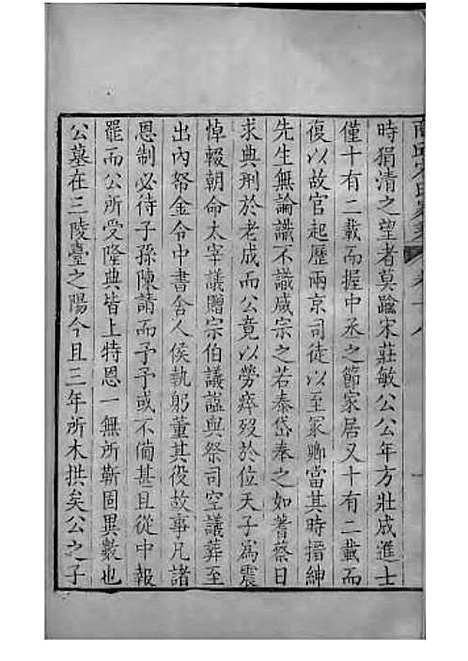 時狷清之望者莫踰宋莊敏公公年方壯成進士
僅十有二載而握中丞之節家居又十有二載而
復以故官起歷兩京司徒以至冢卿當其時搢紳
先生無論識不識咸宗之若泰岱奉之如蓍蔡日
求典刑於老成而公竟以勞瘁歿於位天子為震
悼輟朝命太宰議贈宗伯議諡與祭司空議葬至
出內帑金令中書舍人侯執躬董其役故事凡諸
恩制必待子孫陳請而予予或不備甚且從中報
罷而公所受隆典皆上特恩一無所靳固異數也
公墓在三陵臺之陽今且三年所木拱矣公之子